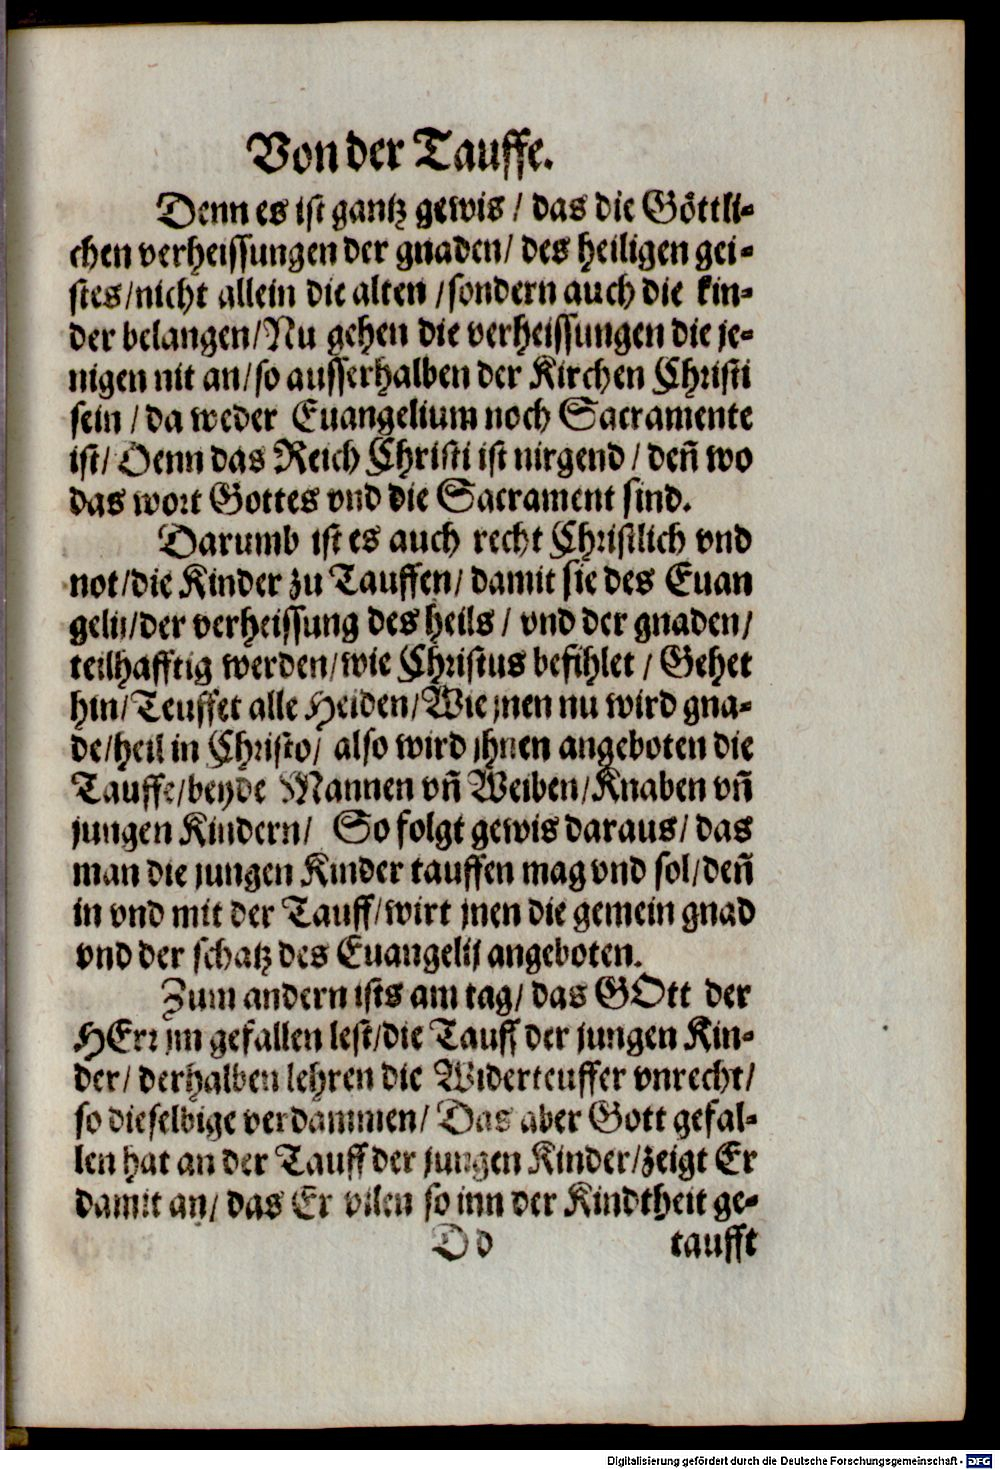 Von der Tauffe.
Denn es ist gantz gewis / das die Göttli-
chen verheissungen der gnaden/ des heiligen gei-
stes/nicht allein die alten /sondern auch die kin-
der belangen/Nu gehen die verheissungen die je-
nigen nit an/so ausserhalben der Kirchen Christi
sein / da weder Euangelium noch Sacramente
ist/ Denn das Reich Christi ist nirgend / deñ wo
das wort Gottes vnd die Sacrament sind.
Darumb ist es auch recht Christlich vnd
not/die Kinder zu Tauffen/ damit sie des Euan
gelij/der verheissung des heils / vnd der gnaden/
teilhafftig werden/wie Christus befihlet / Gehet
hin/ Teuffet alle Heiden/Wie jnen nu wird gna-
de/heil in Christo/ also wird jhnen angeboten die
Tauffe/beyde Mannen vñ Weiben/Knaben vñ
jungen Kindern/ So folgt gewis daraus/ das
man die jungen Kinder tauffen mag vnd sol/deñ
in vnd mit der Tauff/wirt jnen die gemein gnad
vnd der schatz des Euangelij angeboten.
Zum andern ists am tag/ das GOtt der
HErr jm gefallen lest/die Tauff der jungen Kin-
der/ derhalben lehren die Widerteuffer vnrecht/
so dieselbige verdammen/ Das aber Gott gefal-
len hat an der Tauff der jungen Kinder/zeigt Er
damit an/ das Er vilen so inn der Kindtheit ge-
Dd taufft
Digitalisierung gefördert durch die Deutsche Forschungsgemeinschaft - DFG